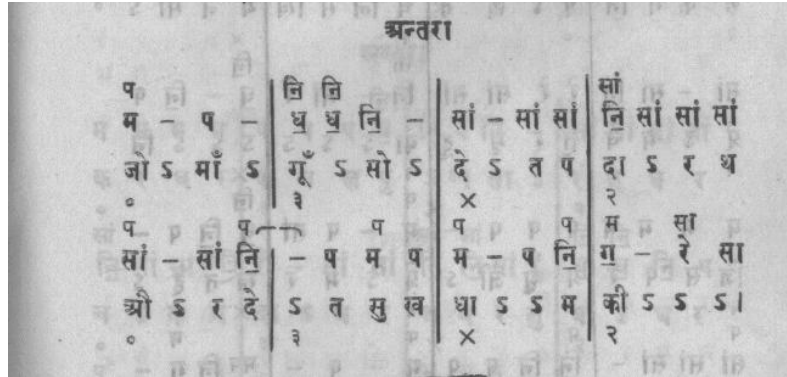 अन्तरा
प | नि॒ नि॒ | | सां
म – प – | ध॒ ध॒ नि॒ – | सां – सां सां | नि॒ सां सां सां
जो ऽ माँ ऽ | गूँ ऽ सो ऽ | दे ऽ त प | दा ऽ र थ
० | ३ | × | २
प प | प | प प | म सा
सां – सां नि॒ | – प म प | म – प नि॒ | ग॒ – रे सा
औ ऽ र दे | ऽ त सु ख | धा ऽ ऽ म | की ऽ ऽ ऽ।
० | ३ | × | २